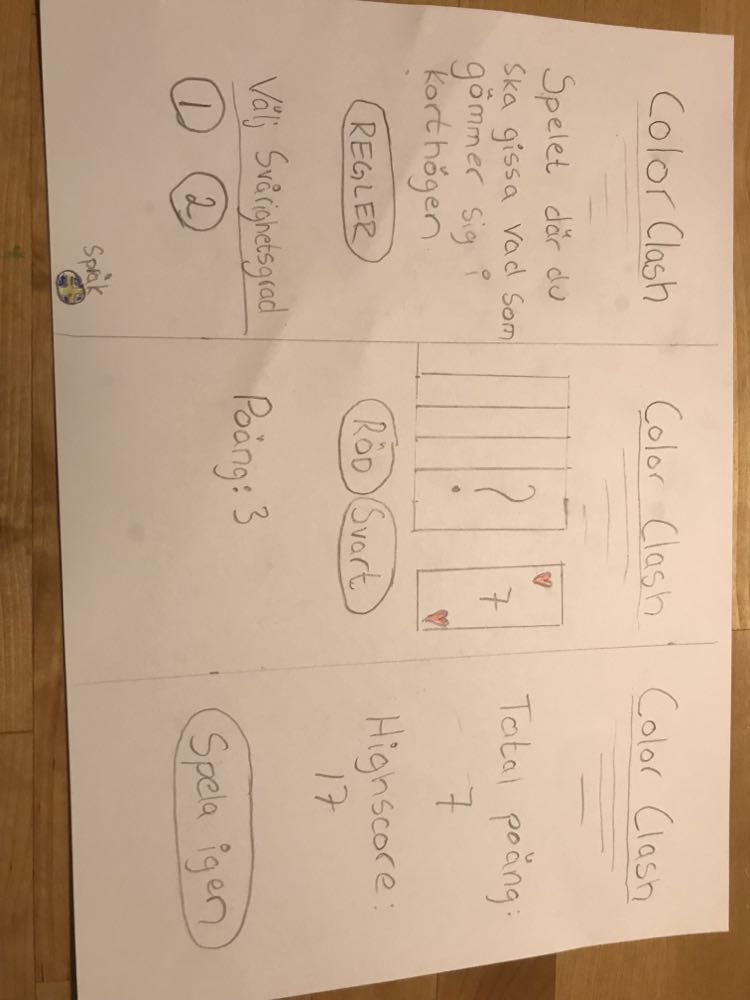 Color Clash
Spelet där du
ska gissa vad som
gömmer sig i
korthögen
REGLER
Välj Svårighetsgrad
1 2
Språk
Color Clash
?
7
Röd Svart
Poäng: 3
Color Clash
Total poäng:
7
Highscore:
17
Spela igen